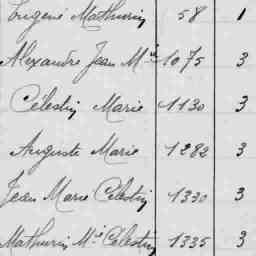 Eugène Mathurin 58 1
Alexandre Jean Mie 1075 3
Célestin Marie 1130 3
Auguste Marie 1282 3
Jean Marie Célestin 1330 3
Mathurin Mie Célestin 1335 3